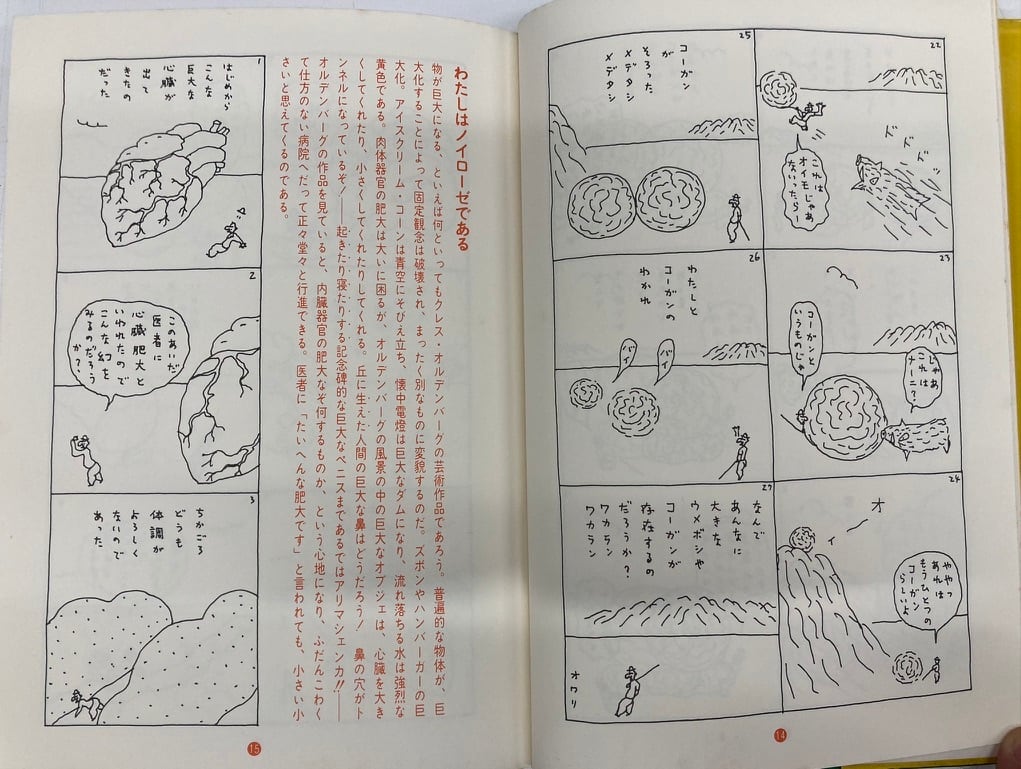 22
ドドドッ
これは
オイモじゃあ
ないったら!
23
じゃあ
これは
ナーニ?
コーガンと
いうものじゃ
24
オーイ
ややっ
あれは
もうひとつの
コーガン
らしいよ
25
コーガン
が
そろった
メデタシ
メデタシ
26
わたしと
コーガンの
わかれ
バイ
バイ
27
なんで
あんなに
大きな
ウメボシや
コーガンが
存在するの
だろうか?
ワカラン
ワカラン
オワリ
14
わたしはノイローゼである
物が巨大になる、といえば何といってもクレス・オルデンバーグの芸術作品であろう。普遍的な物体が、巨
大化することによって固定観念は破壊され、まったく別なものに変貌するのだ。ズボンやハンバーガーの巨
大化。アイスクリーム・コーンは青空にそびえ立ち、懐中電燈は巨大なダムになり、流れ落ちる水は強烈な
黄色である。肉体器官の肥大は大いに困るが、オルデンバーグの風景の中の巨大なオブジェは、心臓を大き
くしてくれたり、小さくしてくれたりしてくれる。丘に生えた人間の巨大な鼻はどうだろう! 鼻の穴がト
ンネルになっているぞ!——起きたり寝たりする記念碑的な巨大なペニスまであるではアリマシェンカ!!——
オルデンバーグの作品を見ていると、内臓器官の肥大なぞ何するものか、という心地になり、ふだんこわく
て仕方のない病院へだって正々堂々と行進できる。医者に「たいへんな肥大です」と言われても、小さい小
さいと思えてくるのである。
1
はじめから
こんな
巨大な
心臓が
出て
きたの
だった
2
このあいだ
医者に
心臓肥大と
いわれたので
こんな幻を
みるのだろう
か?
3
ちかごろ
どうも
体調が
よろしく
ないので
あった
15